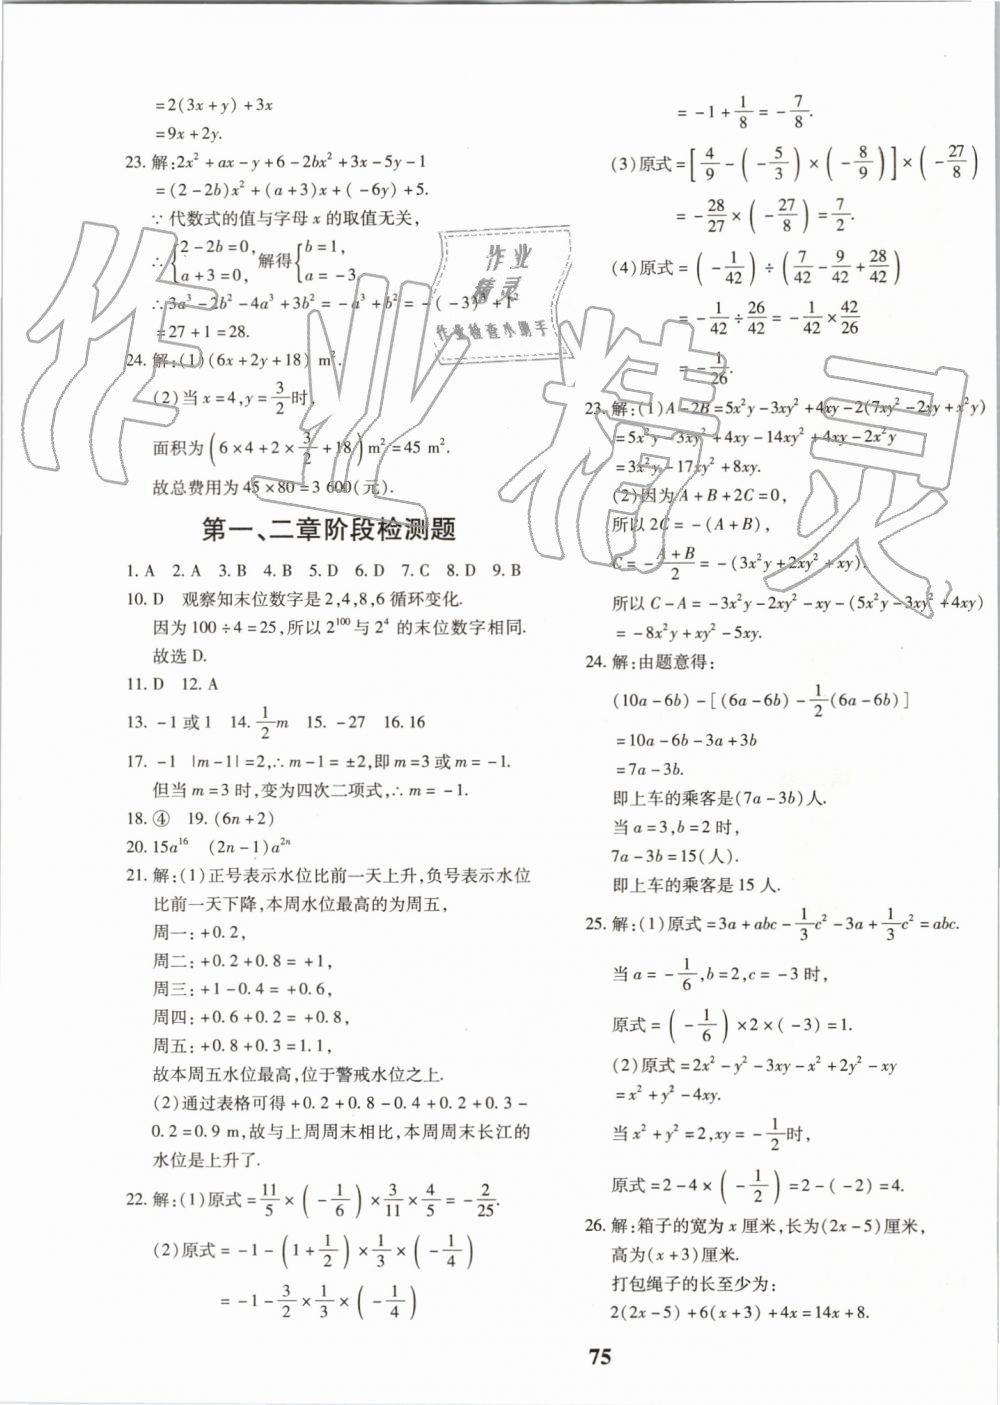 =2(3x+y)+3x
=9x+2y.
23. 解:2x²+ax-y+6-2bx²+3x-5y-1
=(2-2b)x²+(a+3)x+(-6y)+5.
∵代数式的值与字母x的取值无关,
∴{2-2b=0, a+3=0, 解得{b=1, a=-3.
∴3a³-2b²-4a³+3b²=-a³+b²=-(-3)³+1²
=27+1=28.
24. 解:(1)(6x+2y+18) m².
(2)当x=4,y=3/2时,
面积为(6×4+2×3/2+18)m²=45 m².
故总费用为45×80=3 600(元).
第一、二章阶段检测题
1. A 2. A 3. B 4. B 5. D 6. D 7. C 8. D 9. B
10. D 观察知末位数字是2,4,8,6循环变化.
因为100÷4=25,所以2¹⁰⁰与2⁴的末位数字相同.
故选D.
11. D 12. A
13. -1或1 14. 1/2m 15. -27 16. 16
17. -1 |m-1|=2,∴m-1=±2,即m=3或m=-1.
但当m=3时,变为四次二项式,∴m=-1.
18. ④ 19. (6n+2)
20. 15a¹⁶ (2n-1)a²ⁿ
21. 解:(1)正号表示水位比前一天上升,负号表示水位
比前一天下降,本周水位最高的为周五,
周一:+0.2,
周二:+0.2+0.8=+1,
周三:+1-0.4=+0.6,
周四:+0.6+0.2=+0.8,
周五:+0.8+0.3=1.1,
故本周五水位最高,位于警戒水位之上.
(2)通过表格可得+0.2+0.8-0.4+0.2+0.3-
0.2=0.9 m,故与上周周末相比,本周周末长江的
水位是上升了.
22. 解:(1)原式=11/5×(-1/6)×3/11×4/5=-2/25.
(2)原式=-1-(1+1/2)×1/3×(-1/4)
=-1-3/2×1/3×(-1/4)
=-1+1/8=-7/8.
(3)原式=[4/9-(-5/3)×(-8/9)]×(-27/8)
=-28/27×(-27/8)=7/2.
(4)原式=(-1/42)÷(7/42-9/42+28/42)
=-1/42÷26/42=-1/42×42/26
=-1/26.
23. 解:(1)A-2B=5x²y-3xy²+4xy-2(7xy²-2xy+x²y)
=5x²y-3xy²+4xy-14xy²+4xy-2x²y
=3x²y-17xy²+8xy.
(2)因为A+B+2C=0,
所以2C=-(A+B),
C=-(A+B)/2=-(3x²y+2xy²+xy).
所以C-A=-3x²y-2xy²-xy-(5x²y-3xy²+4xy)
=-8x²y+xy²-5xy.
24. 解:由题意得:
(10a-6b)-[(6a-6b)-1/2(6a-6b)]
=10a-6b-3a+3b
=7a-3b.
即上车的乘客是(7a-3b)人.
当a=3,b=2时,
7a-3b=15(人).
即上车的乘客是15人.
25. 解:(1)原式=3a+abc-1/3c²-3a+1/3c²=abc.
当a=-1/6,b=2,c=-3时,
原式=(-1/6)×2×(-3)=1.
(2)原式=2x²-y²-3xy-x²+2y²-xy
=x²+y²-4xy.
当x²+y²=2,xy=-1/2时,
原式=2-4×(-1/2)=2-(-2)=4.
26. 解:箱子的宽为x厘米,长为(2x-5)厘米,
高为(x+3)厘米.
打包绳子的长至少为:
2(2x-5)+6(x+3)+4x=14x+8.
75
作业精灵
作业
精灵
作业检查小助手